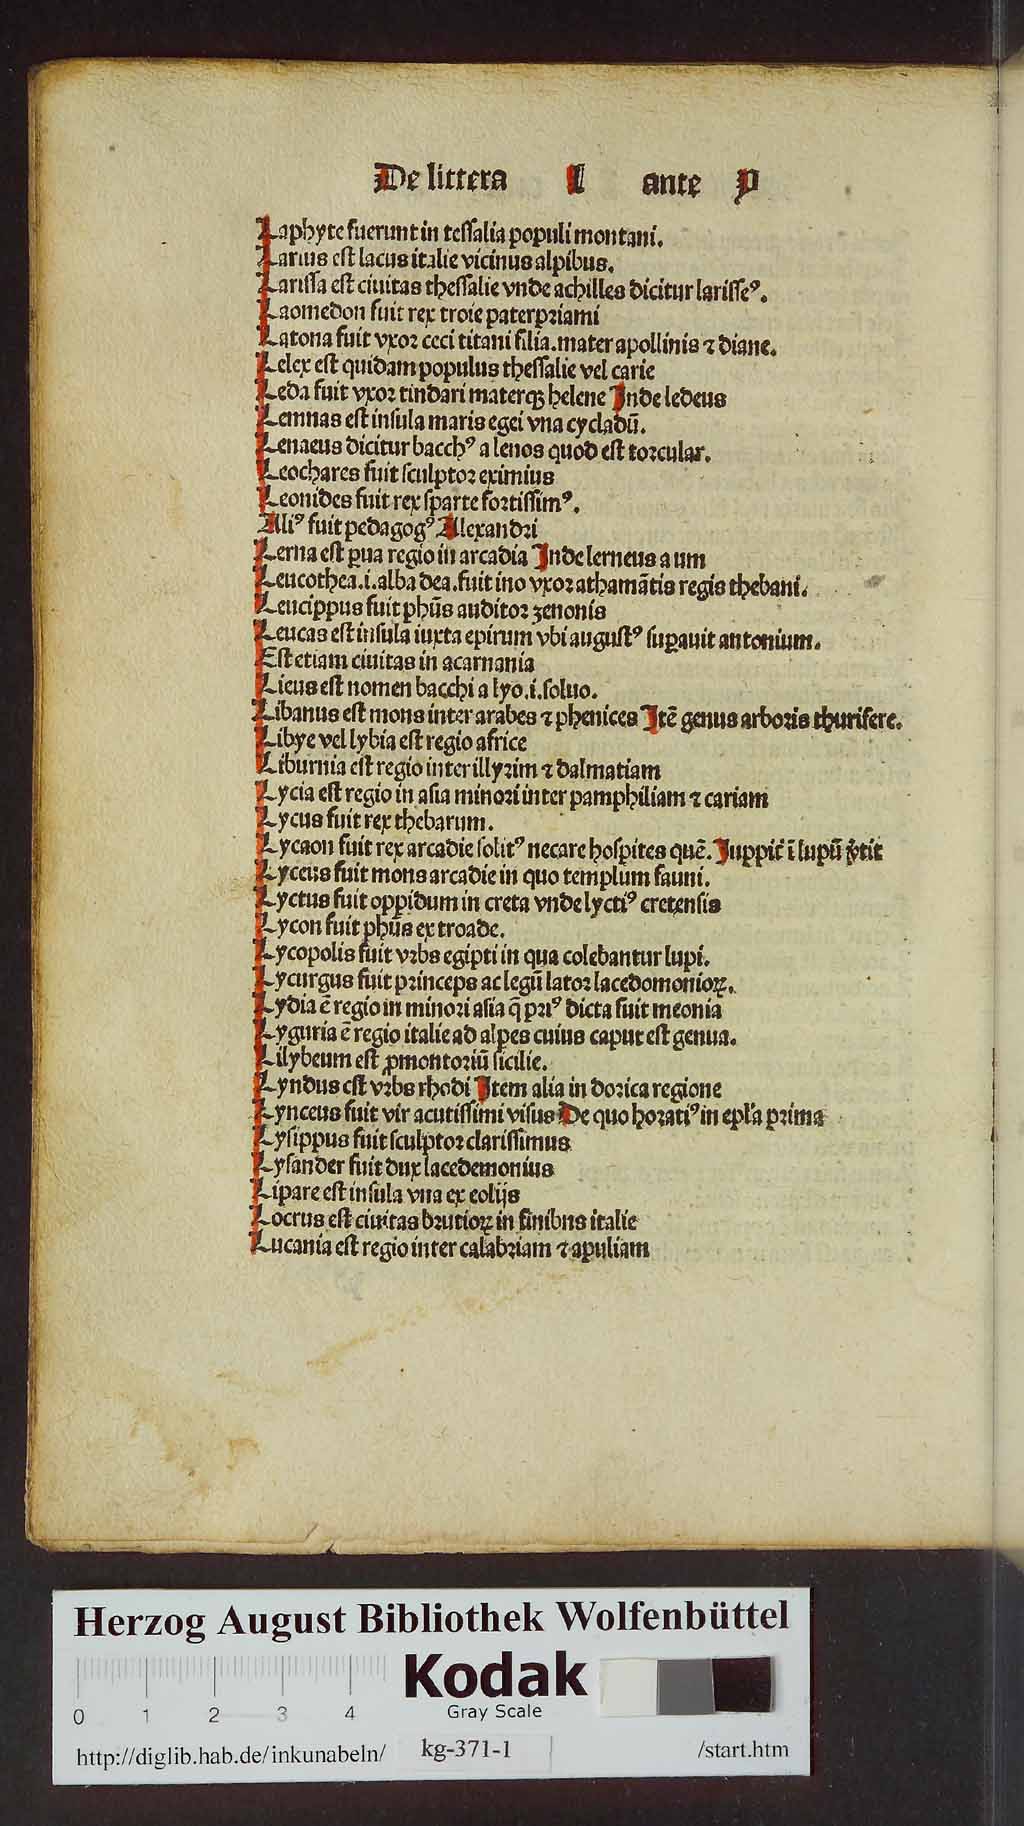 De littera L ante P
Laphyte fuerunt in tessalia populi montani.
Larius est lacus italie vicinus alpibus.
Larissa est ciuitas thessalie vnde achilles dicitur larisseꝰ.
Laomedon fuit rex troie paterpriami
Latona fuit vxor ceci titani filia.mater apollinis ⁊ diane.
Lelex est quidam populus thessalie vel carie
Leda fuit vxor tindari materqꝫ helene Inde ledeus
Lemnas est insula maris egei vna cycladū.
Lenaeus dicitur bacchꝰ a lenos quod est torcular.
Leochares fuit sculptor eximius
Leonides fuit rex sparte fortissimꝰ.
Aliꝰ fuit pedagogꝰ Alexandri
Lerna est ꝑua regio in arcadia Inde lerneus a um
Leucothea.i.alba dea.fuit ino vxor athamātis regis thebani.
Leucippus fuit phūs auditor zenonis
Leucas est insula iuxta epirum vbi augustꝰ suꝑauit antonium.
Est etiam ciuitas in acarnania
Lieus est nomen bacchi a lyo.i.soluo.
Libanus est mons inter arabes ⁊ phenices Itē genus arboris thurifere.
Libye vel lybia est regio africe
Liburnia est regio inter illyrim ⁊ dalmatiam
Lycia est regio in asia minori inter pamphiliam ⁊ cariam
Lycus fuit rex thebarum.
Lycaon fuit rex arcadie solitꝰ necare hospites quē. Iuppit̄ ī lupū v̓tit
Lyceus fuit mons arcadie in quo templum fauni.
Lyctus fuit oppidum in creta vnde lyctiꝰ cretensis
Lycon fuit phūs ex troade.
Lycopolis fuit vrbs egipti in qua colebantur lupi.
Lycurgus fuit princeps ac legū lator lacedomonioꝝ.
Lydia ē regio in minori asia q̄ priꝰ dicta fuit meonia
Lyguria ē regio italie ad alpes cuius caput est genua.
Lilybeum est ꝓmontoriū sicilie.
Lyndus est vrbs rhodi Item alia in dorica regione
Lynceus fuit vir acutissimi visus De quo horatiꝰ in epl̓a prima
Lysippus fuit sculptor clarissimus
Lysander fuit dux lacedemonius
Lipare est insula vna ex eolijs
Locrus est ciuitas brutioꝝ in finibns italie
Lucania est regio inter calabriam ⁊ apuliam
Herzog August Bibliothek Wolfenbüttel
Kodak
Gray Scale
0 1 2 3 4
http://diglib.hab.de/inkunabeln/ kg-371-1 /start.htm